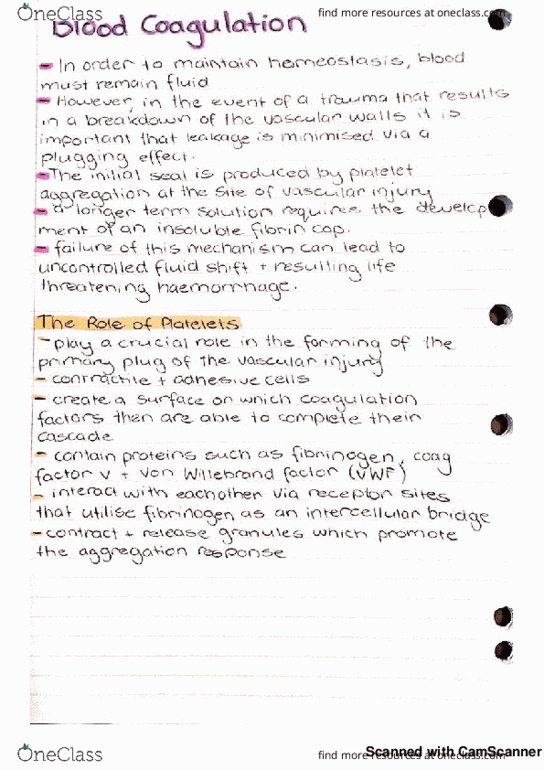 OneClass
find more resources at oneclass.com
Blood Coagulation
- In order to maintain homeostasis, blood
must remain fluid
- However, in the event of a trauma that results
in a breakdown of the vascular walls it is
important that leakage is minimised via a
plugging effect.
- The initial seal is produced by platelet
aggregation at the site of vascular injury
- a longer term solution requires the develop
ment of an insoluble fibrin cap.
- failure of this mechanism can lead to
uncontrolled fluid shift + resulting life
threatening haemorrhage.
The Role of Platelets
- play a crucial role in the forming of the
primary plug of the vascular injury
- contractile + adhesive cells
- create a surface on which coagulation
factors then are able to complete their
cascade
- contain proteins such as fibrinogen, coag
factor V + Von Willebrand factor (VWF)
- interact with eachother via receptor sites
that utilise fibrinogen as an intercellular bridge
- contract + release granules which promote
the aggregation response
OneClass
find more resources at oneclass.com
Scanned with CamScanner